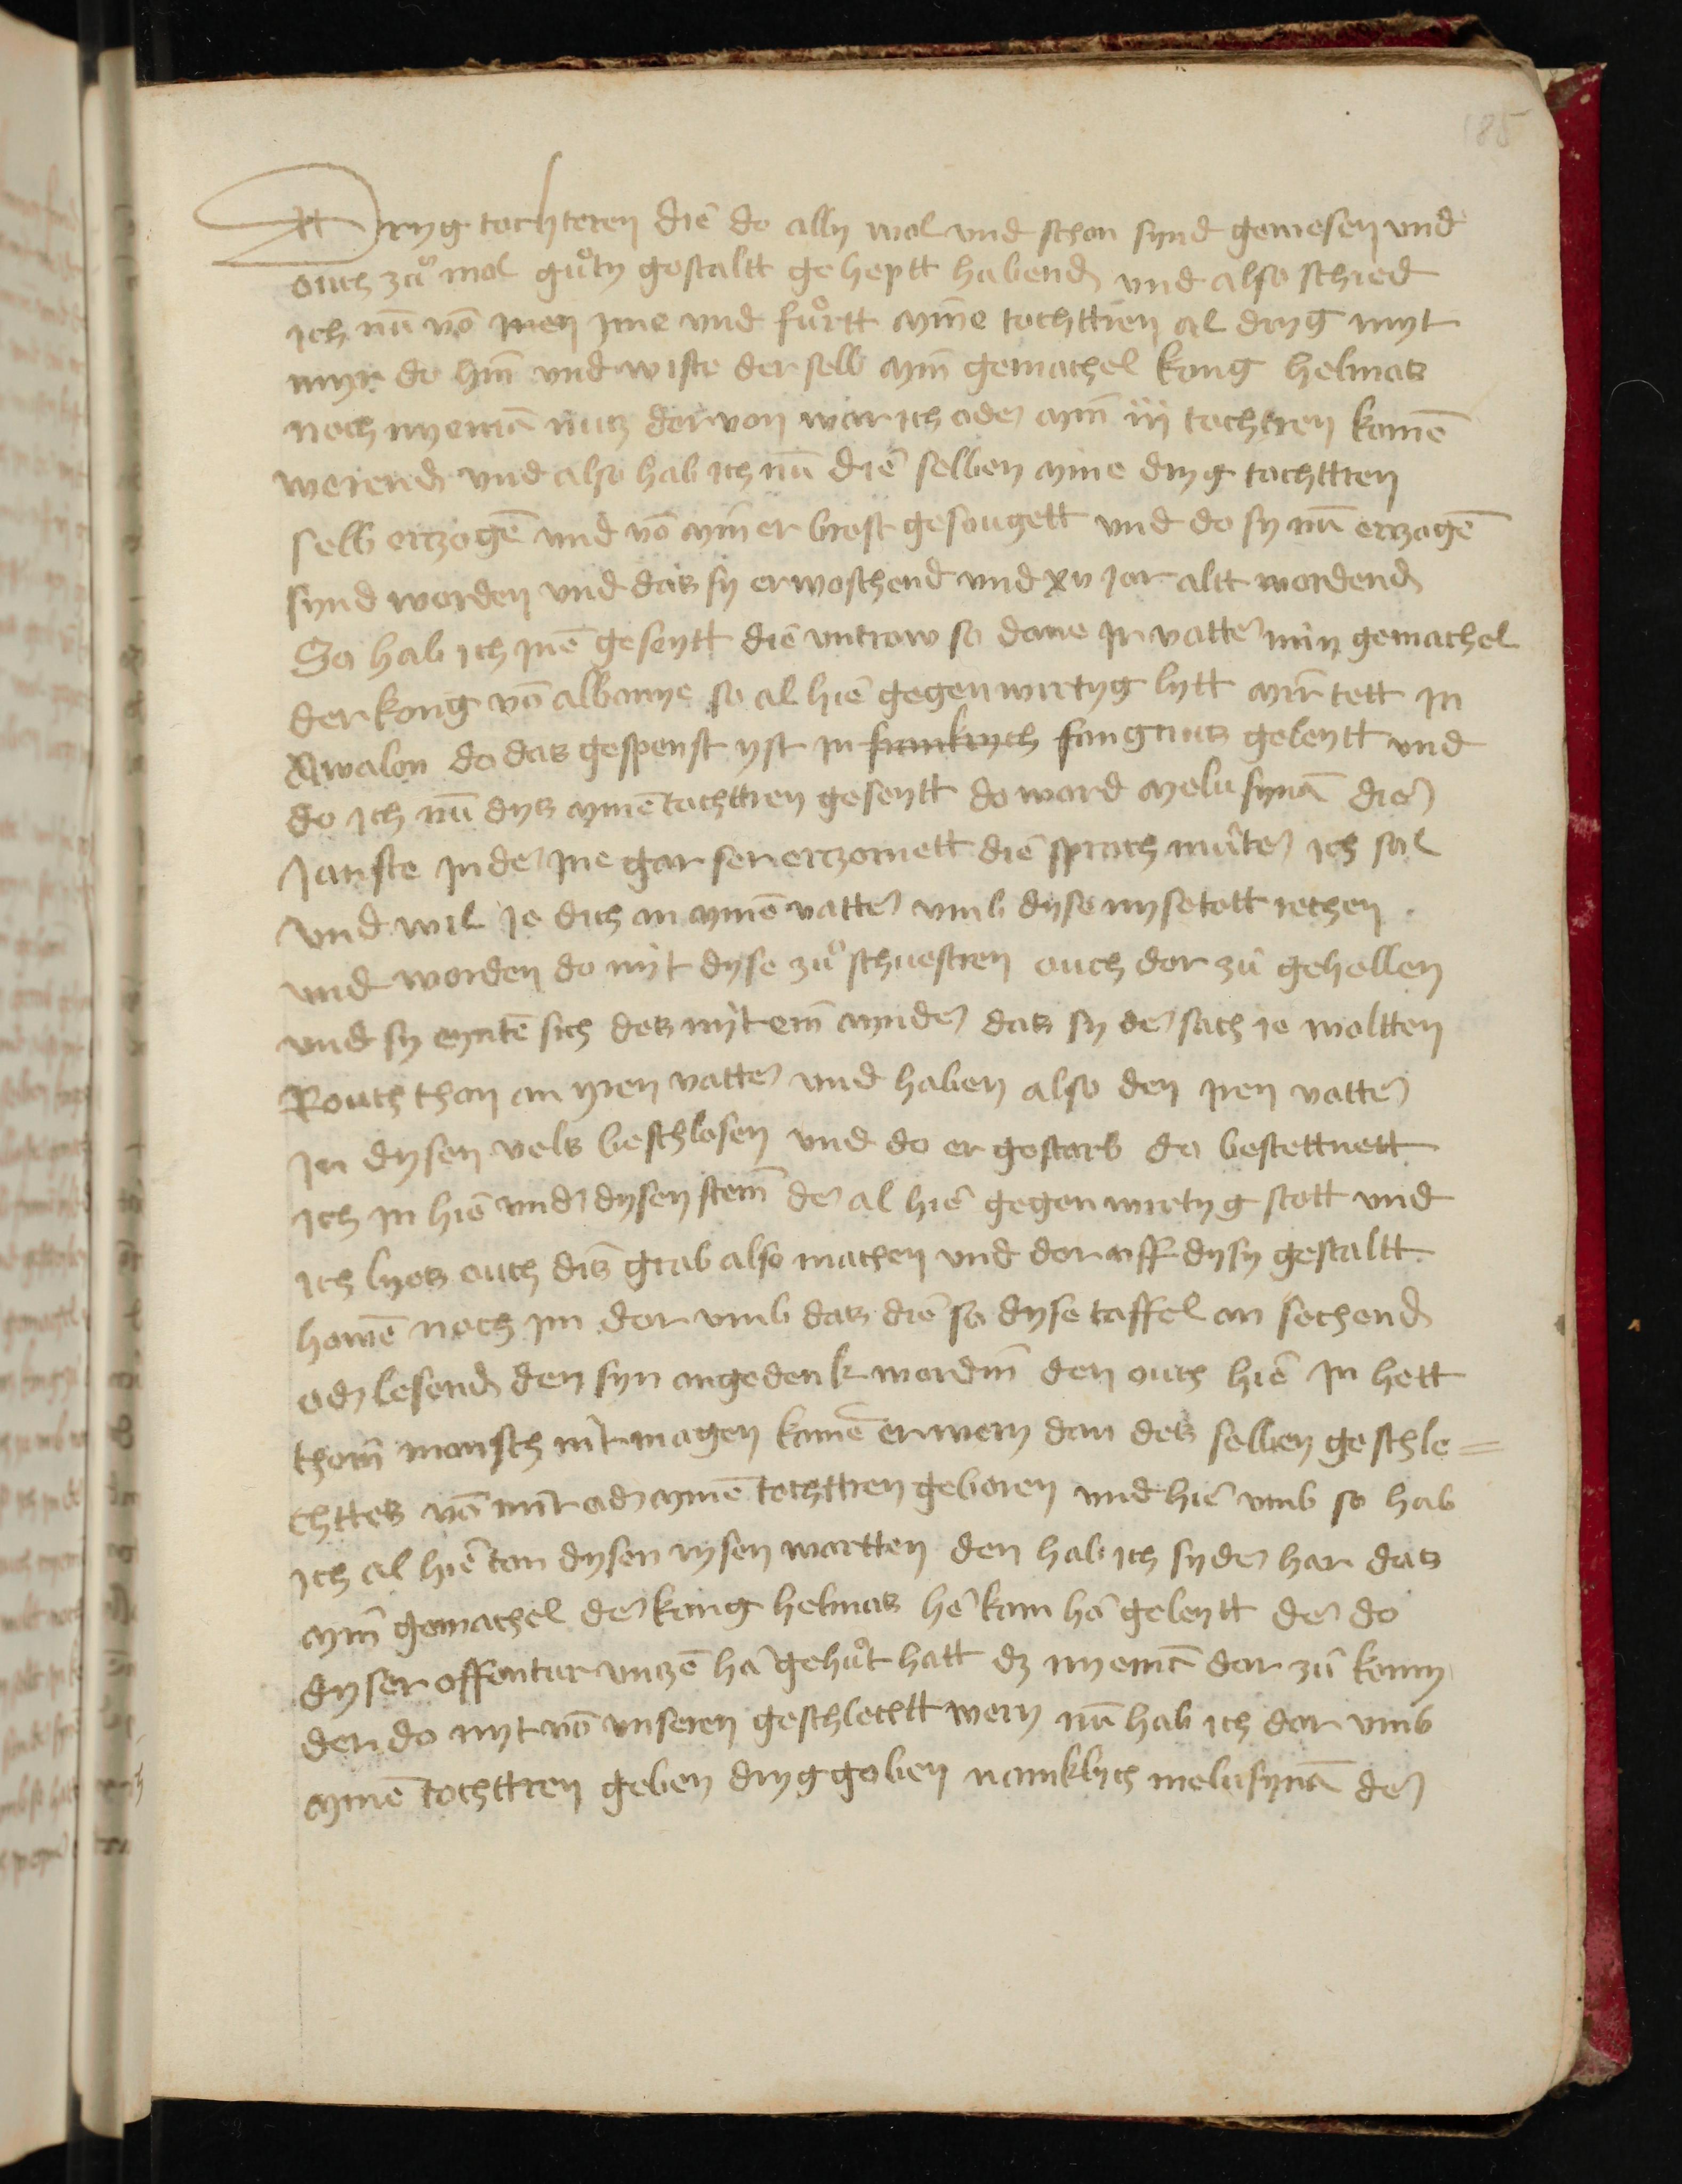 185
Dryg tochteren die do ally wol vnd schon synd gewesen vnd
ouch zuͦ mol guͦty gestaltt geheptt habend vnd also schied
ich nū vō inen jme vnd fuͦrtt myne tochttren al dryg myt
myr do hin vnd wiste der selb myn gemachel kong helmas
noch nyemā nutz dor von war ich oder myn iij tochtren komē
werend vnd also hab ich nū die selben myne dryg tochttren
selb erzogē vnd vō myner brost gesougett vnd do sy nū erzogē
synd worden vnd das sy erwoschend vnd xv jor altt wordend
So hab ich jnē geseytt die vntrow so done jr vatter min gemachel
der kong vō albanye so al hie gegenwirtyg lytt myr tett jn
Awalon do das gespenst yst jn frankrych fangnus geleytt vnd
do ich nū dys mynē tochttren geseytt do word melusynā die
Janste jnder jne gar ser erzornett die sprach muter ich sol
vnd wil je dich an mynē vatter vmb dyse mysetott rechen
vnd worden do myt dyse zuͦ schuestren ouch dor zu gehollen
vnd sy eyntē sich des mit ein ynder das sy der sach je woltten
Rouch thon an yren vatter vnd haben also den jren vatter
Jn dysen vels beschlosen vnd do er gestarb do bestettnett
ich jn hie vnder dysen stein der al hie gegenwirtyg stott vnd
ich lyes ouch dis grab also machen vnd dor uff dysy gestaltt
howē noch jm dor vmb das die so dyse taffel an sechend
oder lesend den syn angedenk wordin den ouch hie jn hett
thein monsch nit magen komē er wery dan des selben geschle=
chttes vō mir oder mynē tochttren geboren vnd hie vmb so hab
ich al hie ton dysen rysen wartten den hab ich syder har das
myn gemachel der kong helmas her kam har geleytt der do
dyser offentur vntzē har gehuͦt hatt dz nyemā dor zu komy
der do nyt vō vnseren geschlechtt wery nū hab ich dor vmb
mynē tochttren geben dryg goben namklych melusynā der